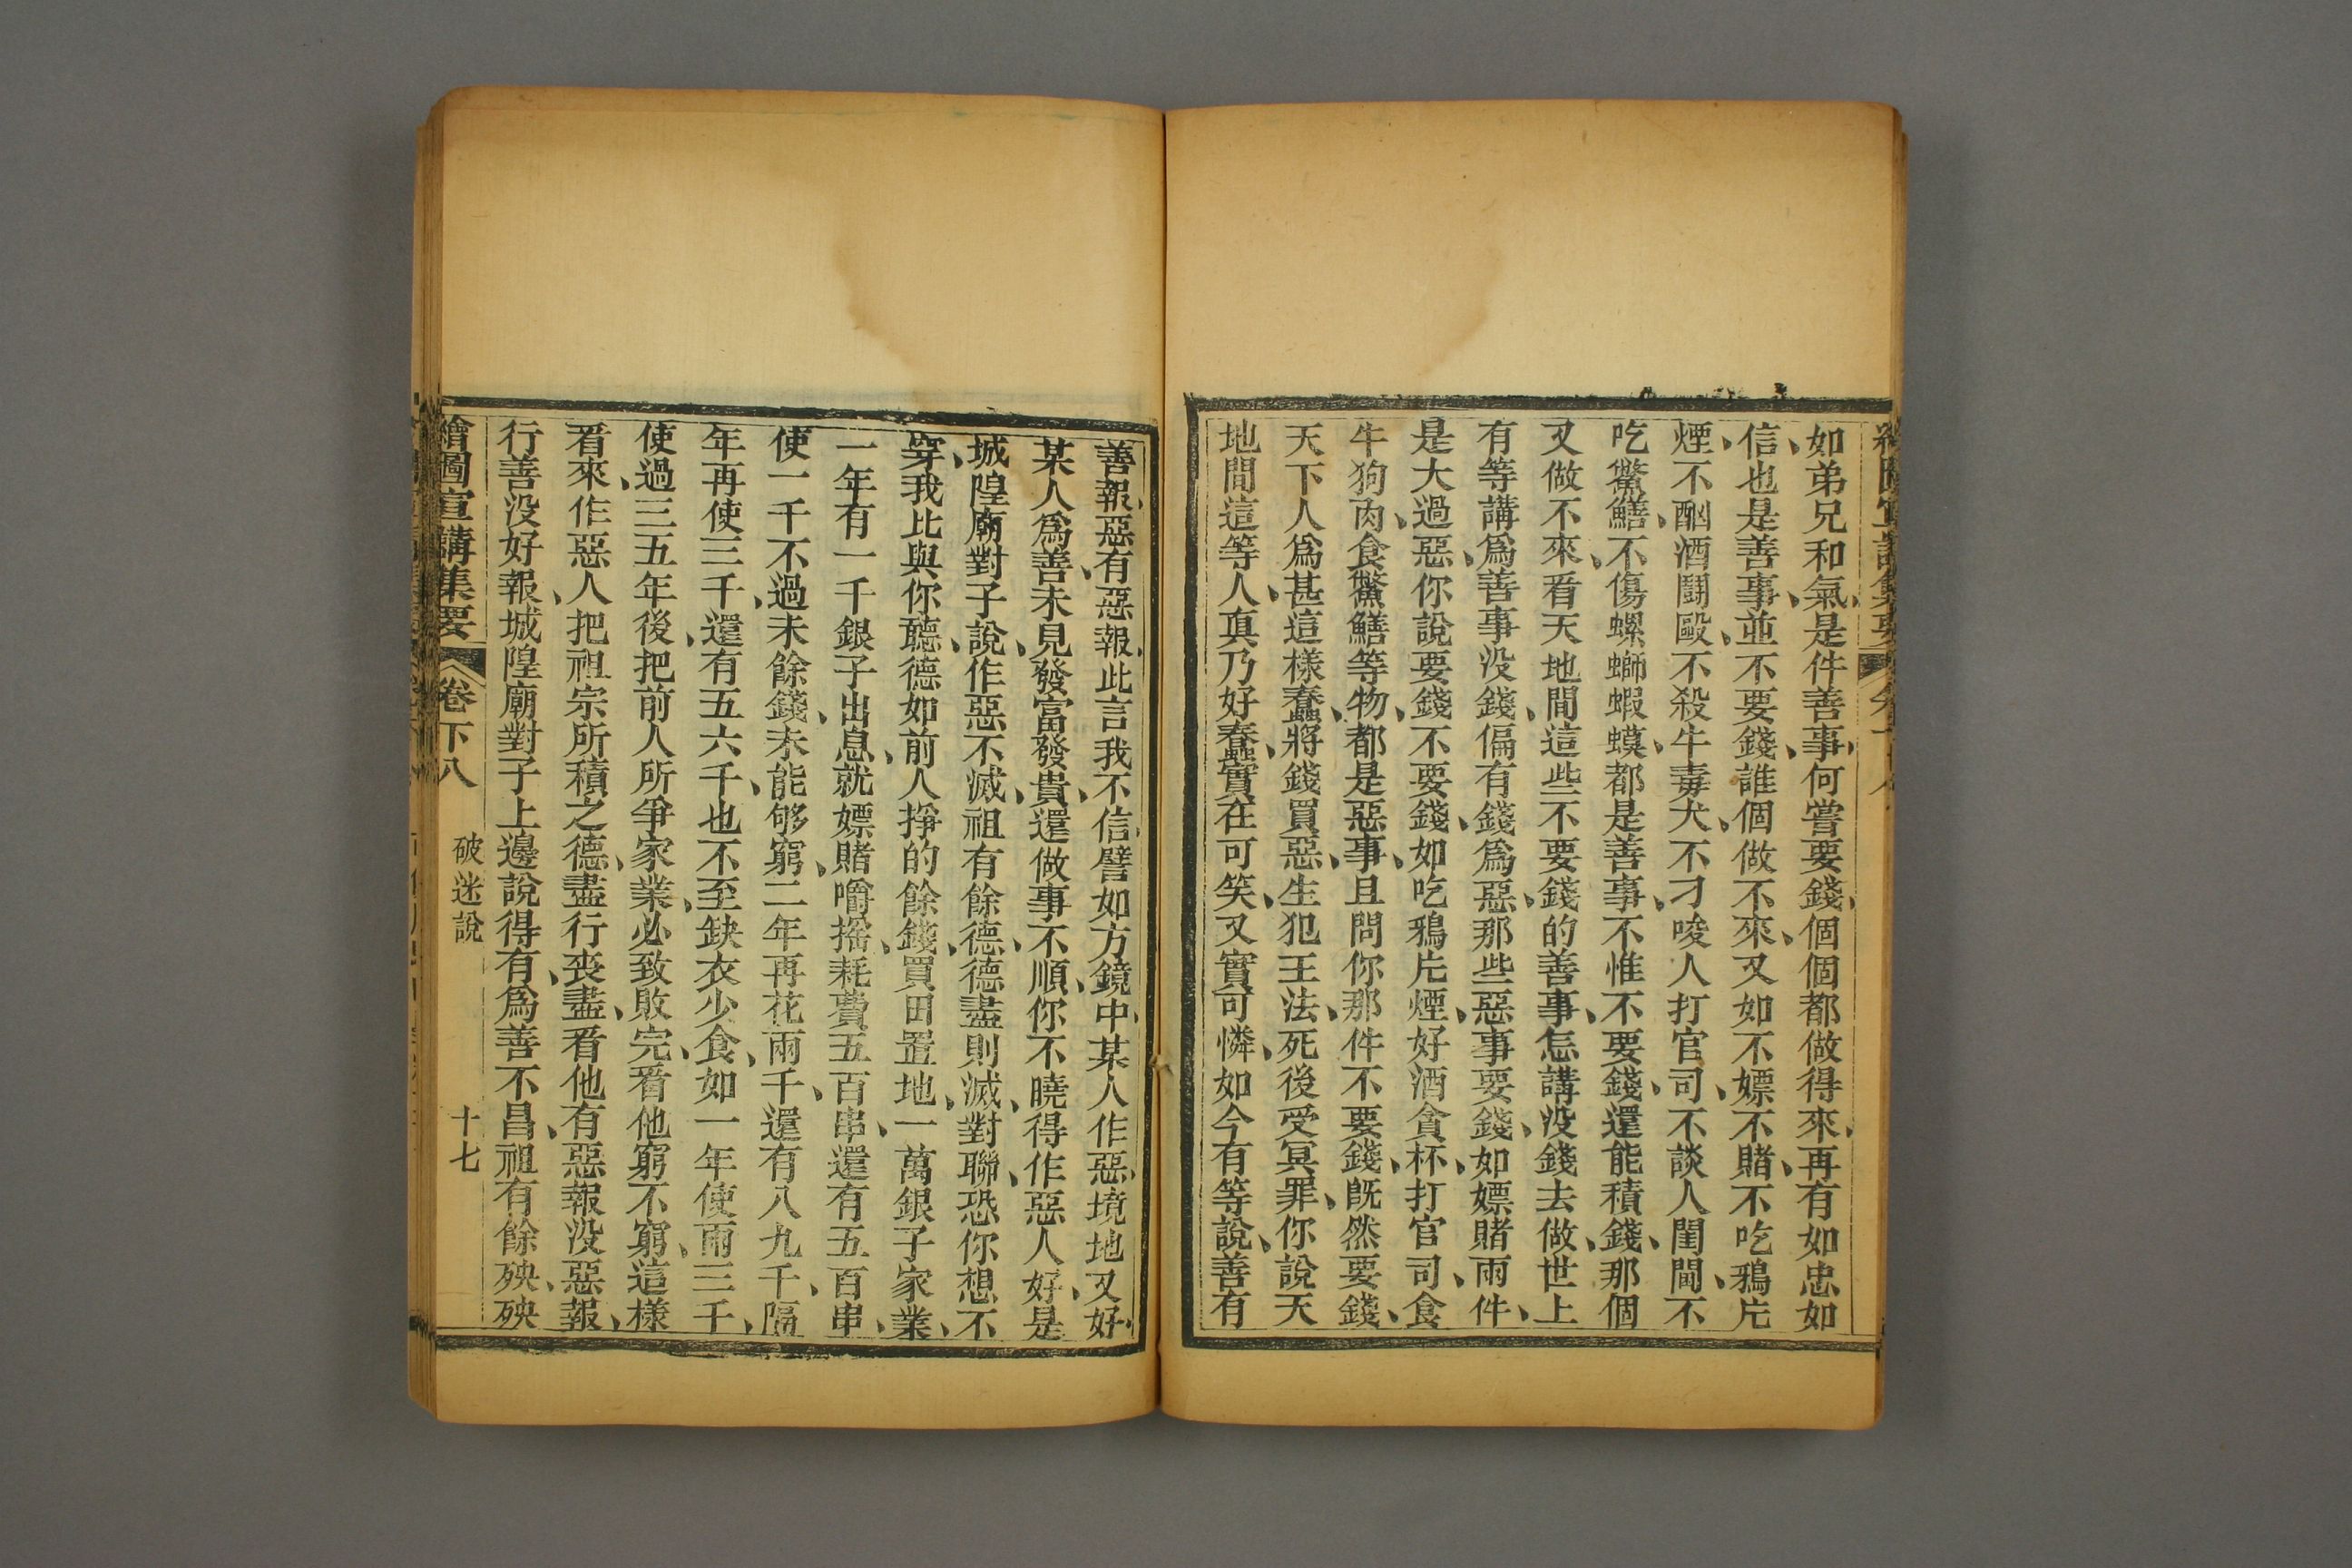 如弟兄和氣、是件善事、何嘗要錢、個個都做得來、再有如忠如
信、也是善事、並不要錢、誰個做不來、又如不嫖不賭、不吃鴉片
煙、不酗酒鬪毆、不殺牛毒犬、不刁唆人打官司、不談人閨閫、不
吃鱉鱔、不傷螺螄蝦蟆、都是善事、不惟不要錢、還能積錢、那個
又做不來、看天地間這些不要錢的善事、怎講没錢去做、世上
有等講爲善事没錢、偏有錢爲惡、那些惡事要錢、如嫖賭兩件、
是大過惡、你說要錢不要錢、如吃鴉片煙、好酒貪杯、打官司、食
牛狗肉、食鱉鱔等物、都是惡事、且問你那件不要錢、旣然要錢、
天下人爲甚這樣蠢、將錢買惡、生犯王法、死後受冥罪、你說天
地間這等人、眞乃好蠢、實在可笑、又實可憐、如今有等說、善有
善報、惡有惡報、此言我不信、譬如方鏡中、某人作惡、境地又好、
某人爲善、未見發富發貴、還做事不順、你不曉得作惡人好、是
城隍廟對子說、作惡不滅、祖有餘德、德盡則滅、對聯恐你想不
穿、我比與你聽、德如前人掙的餘錢、買田置地、一萬銀子家業、
一年有一千銀子出息、就嫖賭嚼搖、耗費五百串、還有五百串、
使一千不過未餘錢、未能够窮、二年再花兩千、還有八九千、隔
年再使三千、還有五六千、也不至缺衣少食、如一年使兩三千、
使過三五年後、把前人所爭家業、必致敗完、看他窮不窮、這樣
看來、作惡人把祖宗所積之德、盡行喪盡、看他有惡報没惡報、
行善没好報、城隍廟對子上邊說得有、爲善不昌、祖有餘殃、殃
繪圖宣講集要 卷下八 破迷說 十七